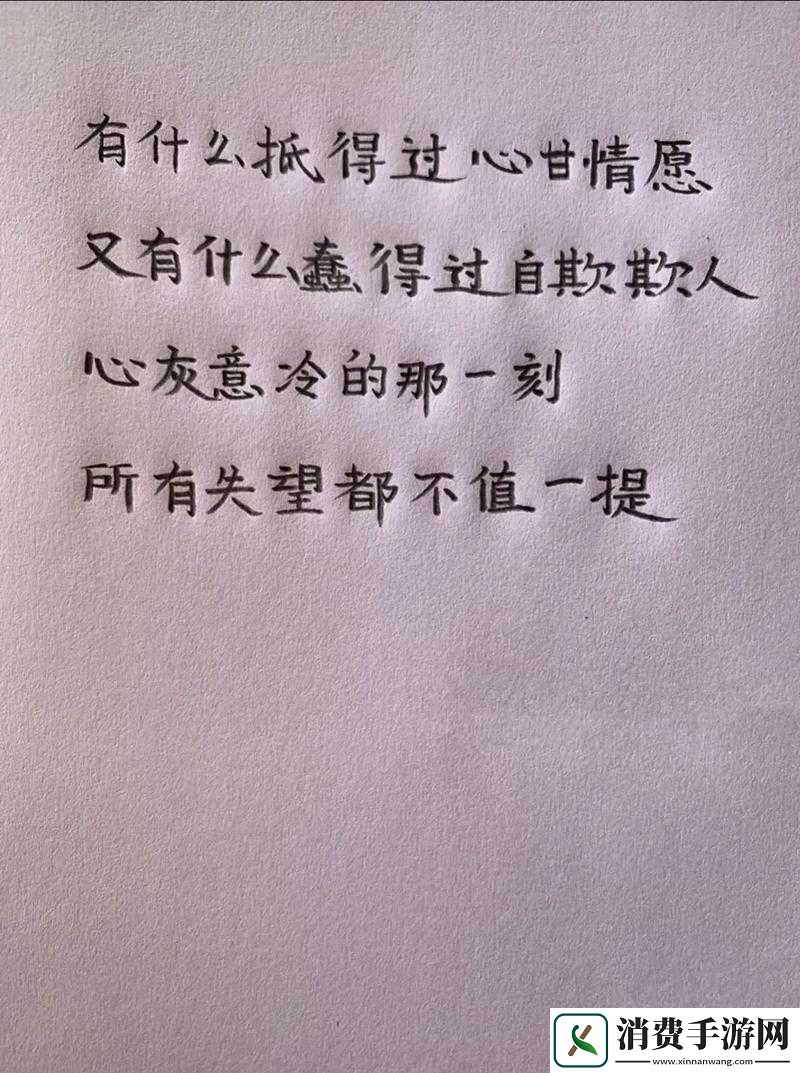 有什么抵得过心甘情愿
又有什么蠢得过自欺欺人
心灰意冷的那一刻
所有失望都不值一提
消费手游网
www.xinnanwang.com